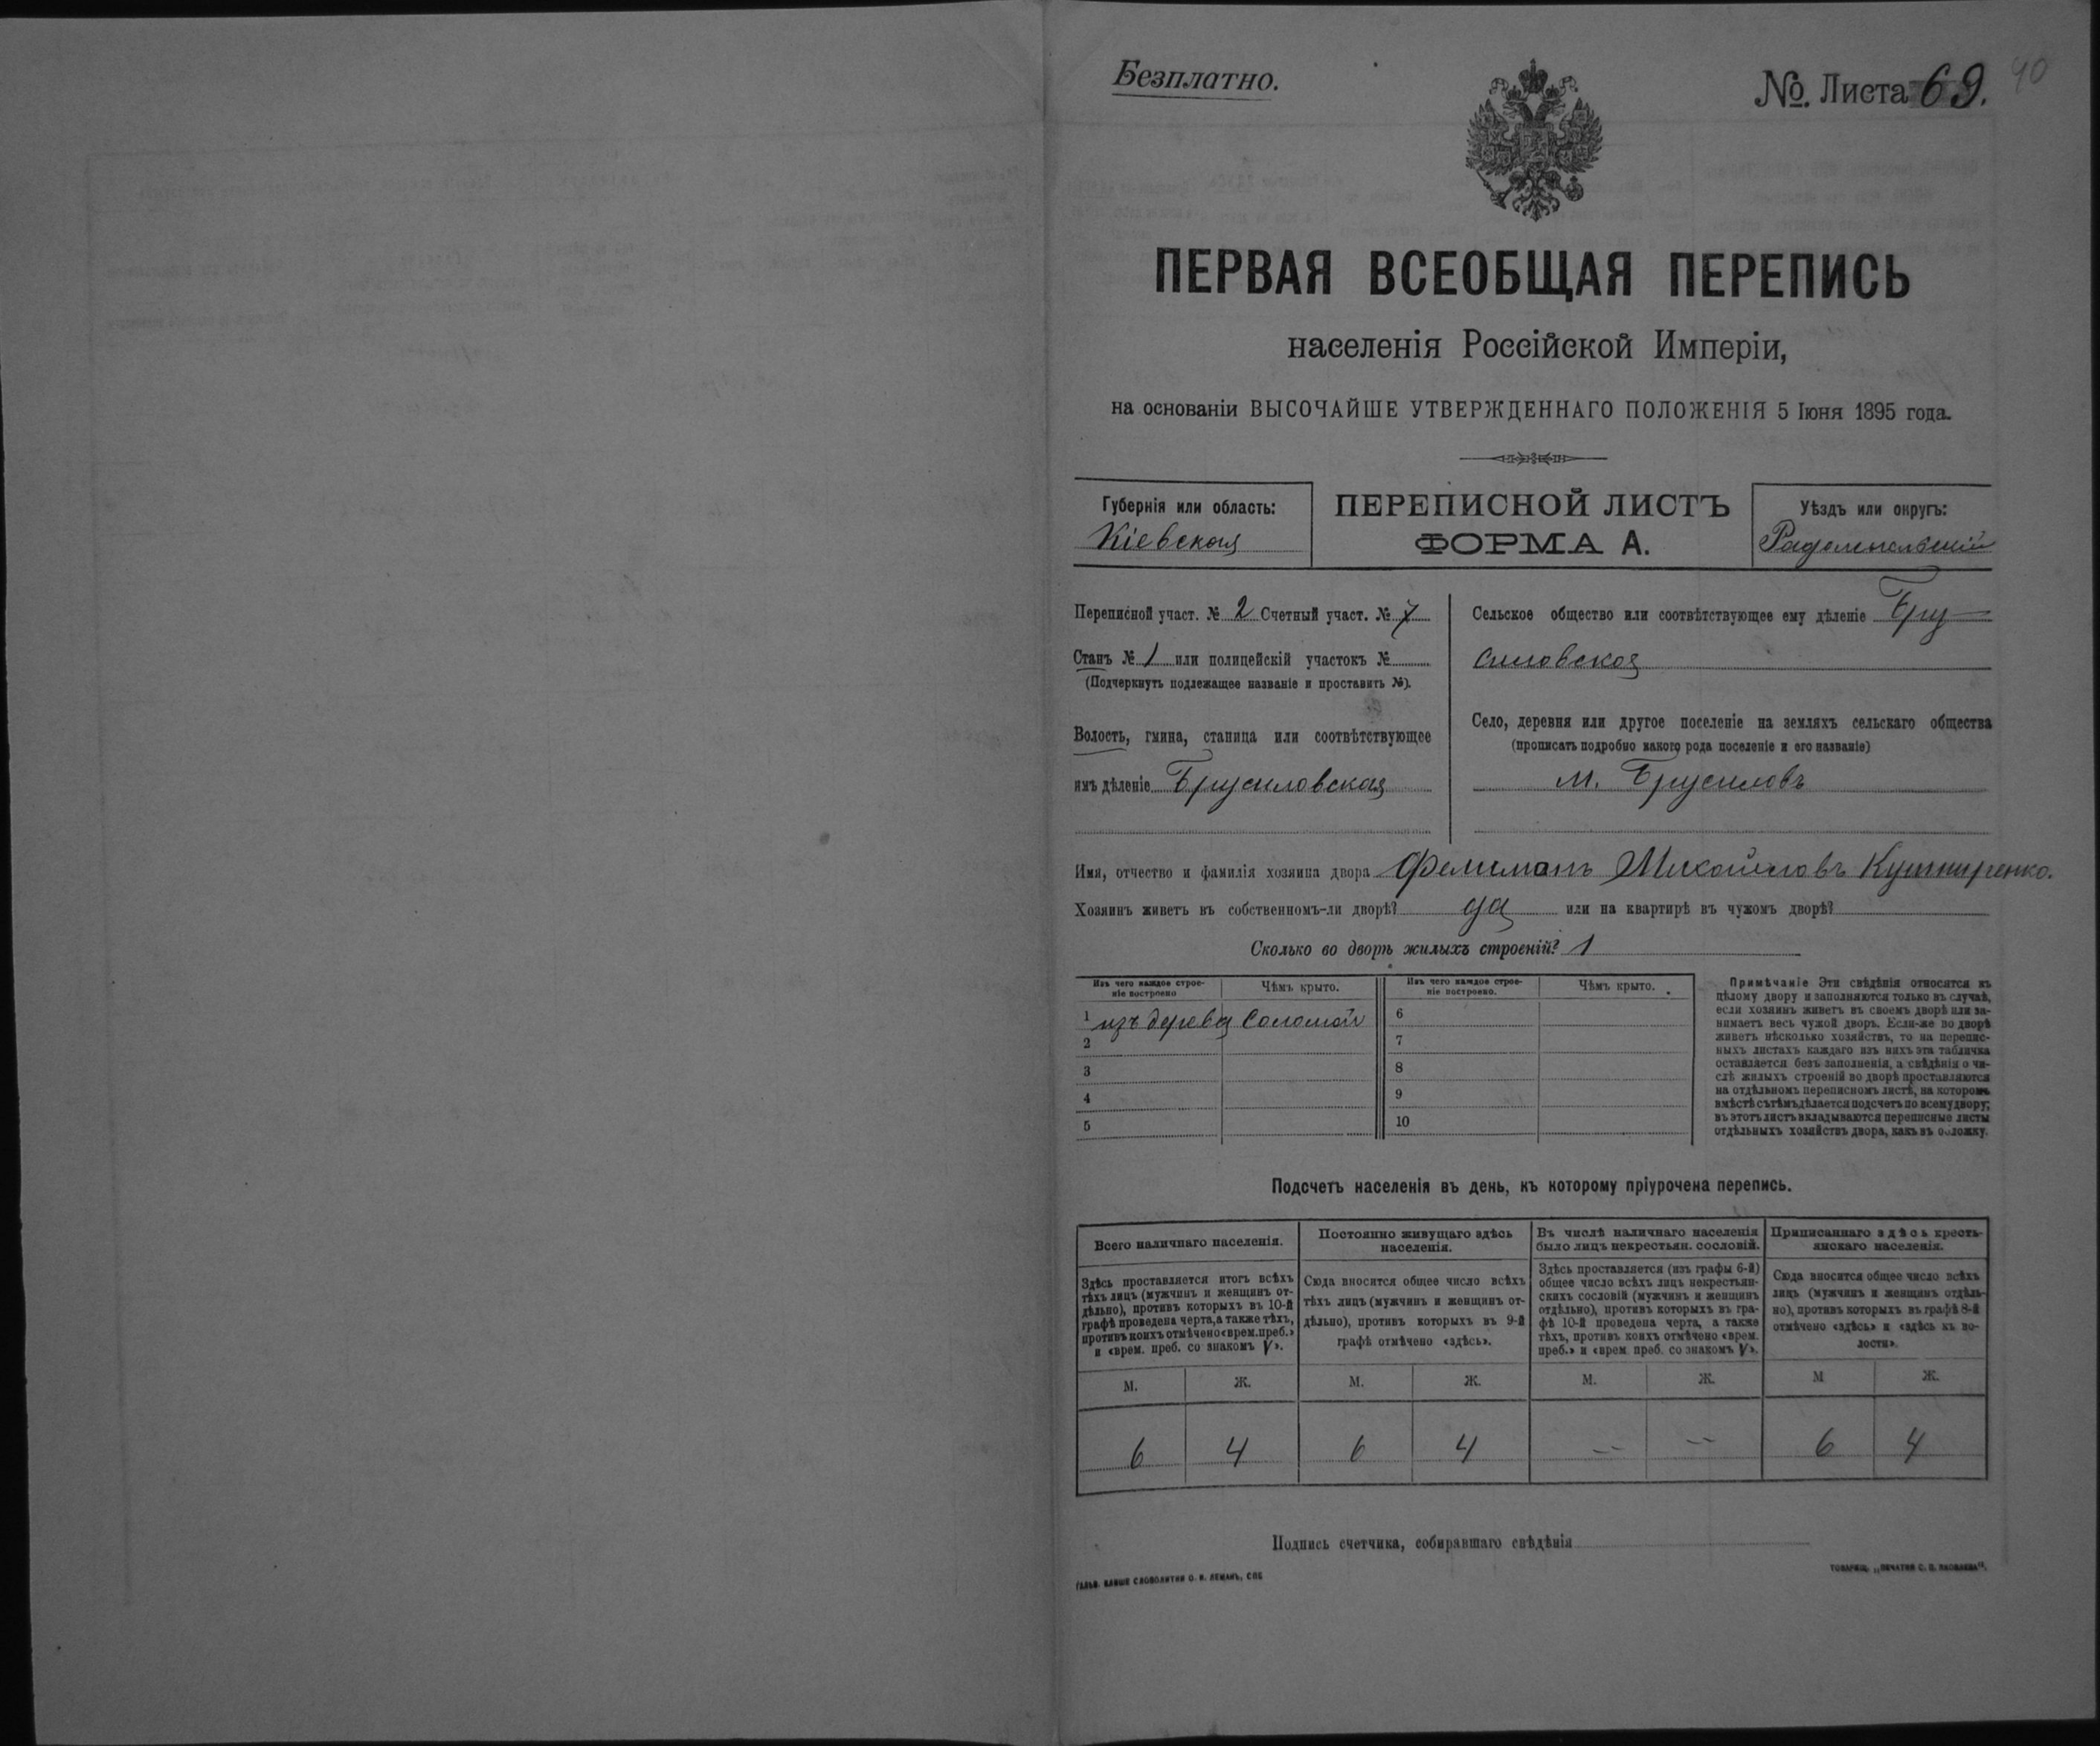 Безплатно.
№. Листа 69.
40
ПЕРВАЯ ВСЕОБЩАЯ ПЕРЕПИСЬ
населенія Россійской Имперіи,
на основаніи ВЫСОЧАЙШЕ УТВЕРЖДЕННАГО ПОЛОЖЕНІЯ 5 Іюня 1895 года.
Губернія или область:
Кіевская
ПЕРЕПИСНОЙ ЛИСТЪ
ФОРМА А.
Уѣздъ или округъ:
Радомысльскій
Переписной участ. № 2 Счетный участ. № 7
Станъ № 1 или полицейскій участокъ №
(Подчеркнуть подлежащее названіе и проставить №).
Волость, гмина, станица или соотвѣтствующее
имъ дѣленіе Брусиловская
Сельское общество или соотвѣтствующее ему дѣленіе Бру-
силовское
Село, деревня или другое поселеніе на земляхъ сельскаго общества
(прописать подробно какого рода поселеніе и его названіе)
м. Брусиловъ
Имя, отчество и фамилія хозяина двора Филимонъ Михайловъ Кушниренко.
Хозяинъ живетъ въ собственномъ-ли дворѣ? да или на квартирѣ въ чужомъ дворѣ?
Сколько во дворѣ жилыхъ строеній? 1
Изъ чего каждое строе-
ніе построено
Чѣмъ крыто.
Изъ чего каждое строе-
ніе построено.
Чѣмъ крыто.
1 изъ дерева Соломой
2
3
4
5
6
7
8
9
10
Примѣчаніе Эти свѣдѣнія относятся къ
цѣлому двору и заполняются только въ случаѣ,
если хозяинъ живетъ въ своемъ дворѣ или за-
нимаетъ весь чужой дворъ. Если-же во дворѣ
живетъ нѣсколько хозяйствъ, то на перепис-
ныхъ листахъ каждаго изъ нихъ эта табличка
оставляется безъ заполненія, а свѣдѣнія о чи-
слѣ жилыхъ строеній во дворѣ проставляются
на отдѣльномъ переписномъ листѣ, на которомъ
вмѣстѣ съ тѣмъ дѣлается подсчетъ по всему двору;
въ этотъ листъ вкладываются переписные листы
отдѣльныхъ хозяйствъ двора, какъ въ обложку.
Подсчетъ населенія въ день, къ которому пріурочена перепись.
Всего наличнаго населенія.
Здѣсь проставляется итогъ всѣхъ
тѣхъ лицъ (мужчинъ и женщинъ от-
дѣльно), противъ которыхъ въ 10-й
графѣ проведена черта, а также тѣхъ,
противъ коихъ отмѣчено «врем. преб.»
и «врем. преб. со знакомъ V».
Постоянно живущаго здѣсь
населенія.
Сюда вносится общее число всѣхъ
тѣхъ лицъ (мужчинъ и женщинъ от-
дѣльно), противъ которыхъ въ 9-й
графѣ отмѣчено «здѣсь».
Въ числѣ наличнаго населенія
было лицъ некрестьян. сословій.
Здѣсь проставляется (изъ графы 6-й)
общее число всѣхъ лицъ некрестьян-
скихъ сословій (мужчинъ и женщинъ
отдѣльно), противъ которыхъ въ гра-
фѣ 10-й проведена черта, а также
тѣхъ, противъ коихъ отмѣчено «врем.
преб.» и «врем. преб. со знакомъ V».
Приписаннаго здѣсь кресть-
янскаго населенія.
Сюда вносится общее число всѣхъ
лицъ (мужчинъ и женщинъ отдѣль-
но), противъ которыхъ въ графѣ 8-й
отмѣчено «здѣсь» и «здѣсь къ во-
лости».
М. Ж. М. Ж. М. Ж. М Ж.
6 4 6 4 — — 6 4
Подпись счетчика, собиравшаго свѣдѣнія
ГАЛЬВ. КЛИШЕ СЛОВОЛИТНИ О. И. ЛЕМАНЪ, СПБ
ТОВАРИЩ. „ПЕЧАТНЯ С. П. ЯКОВЛЕВА“.